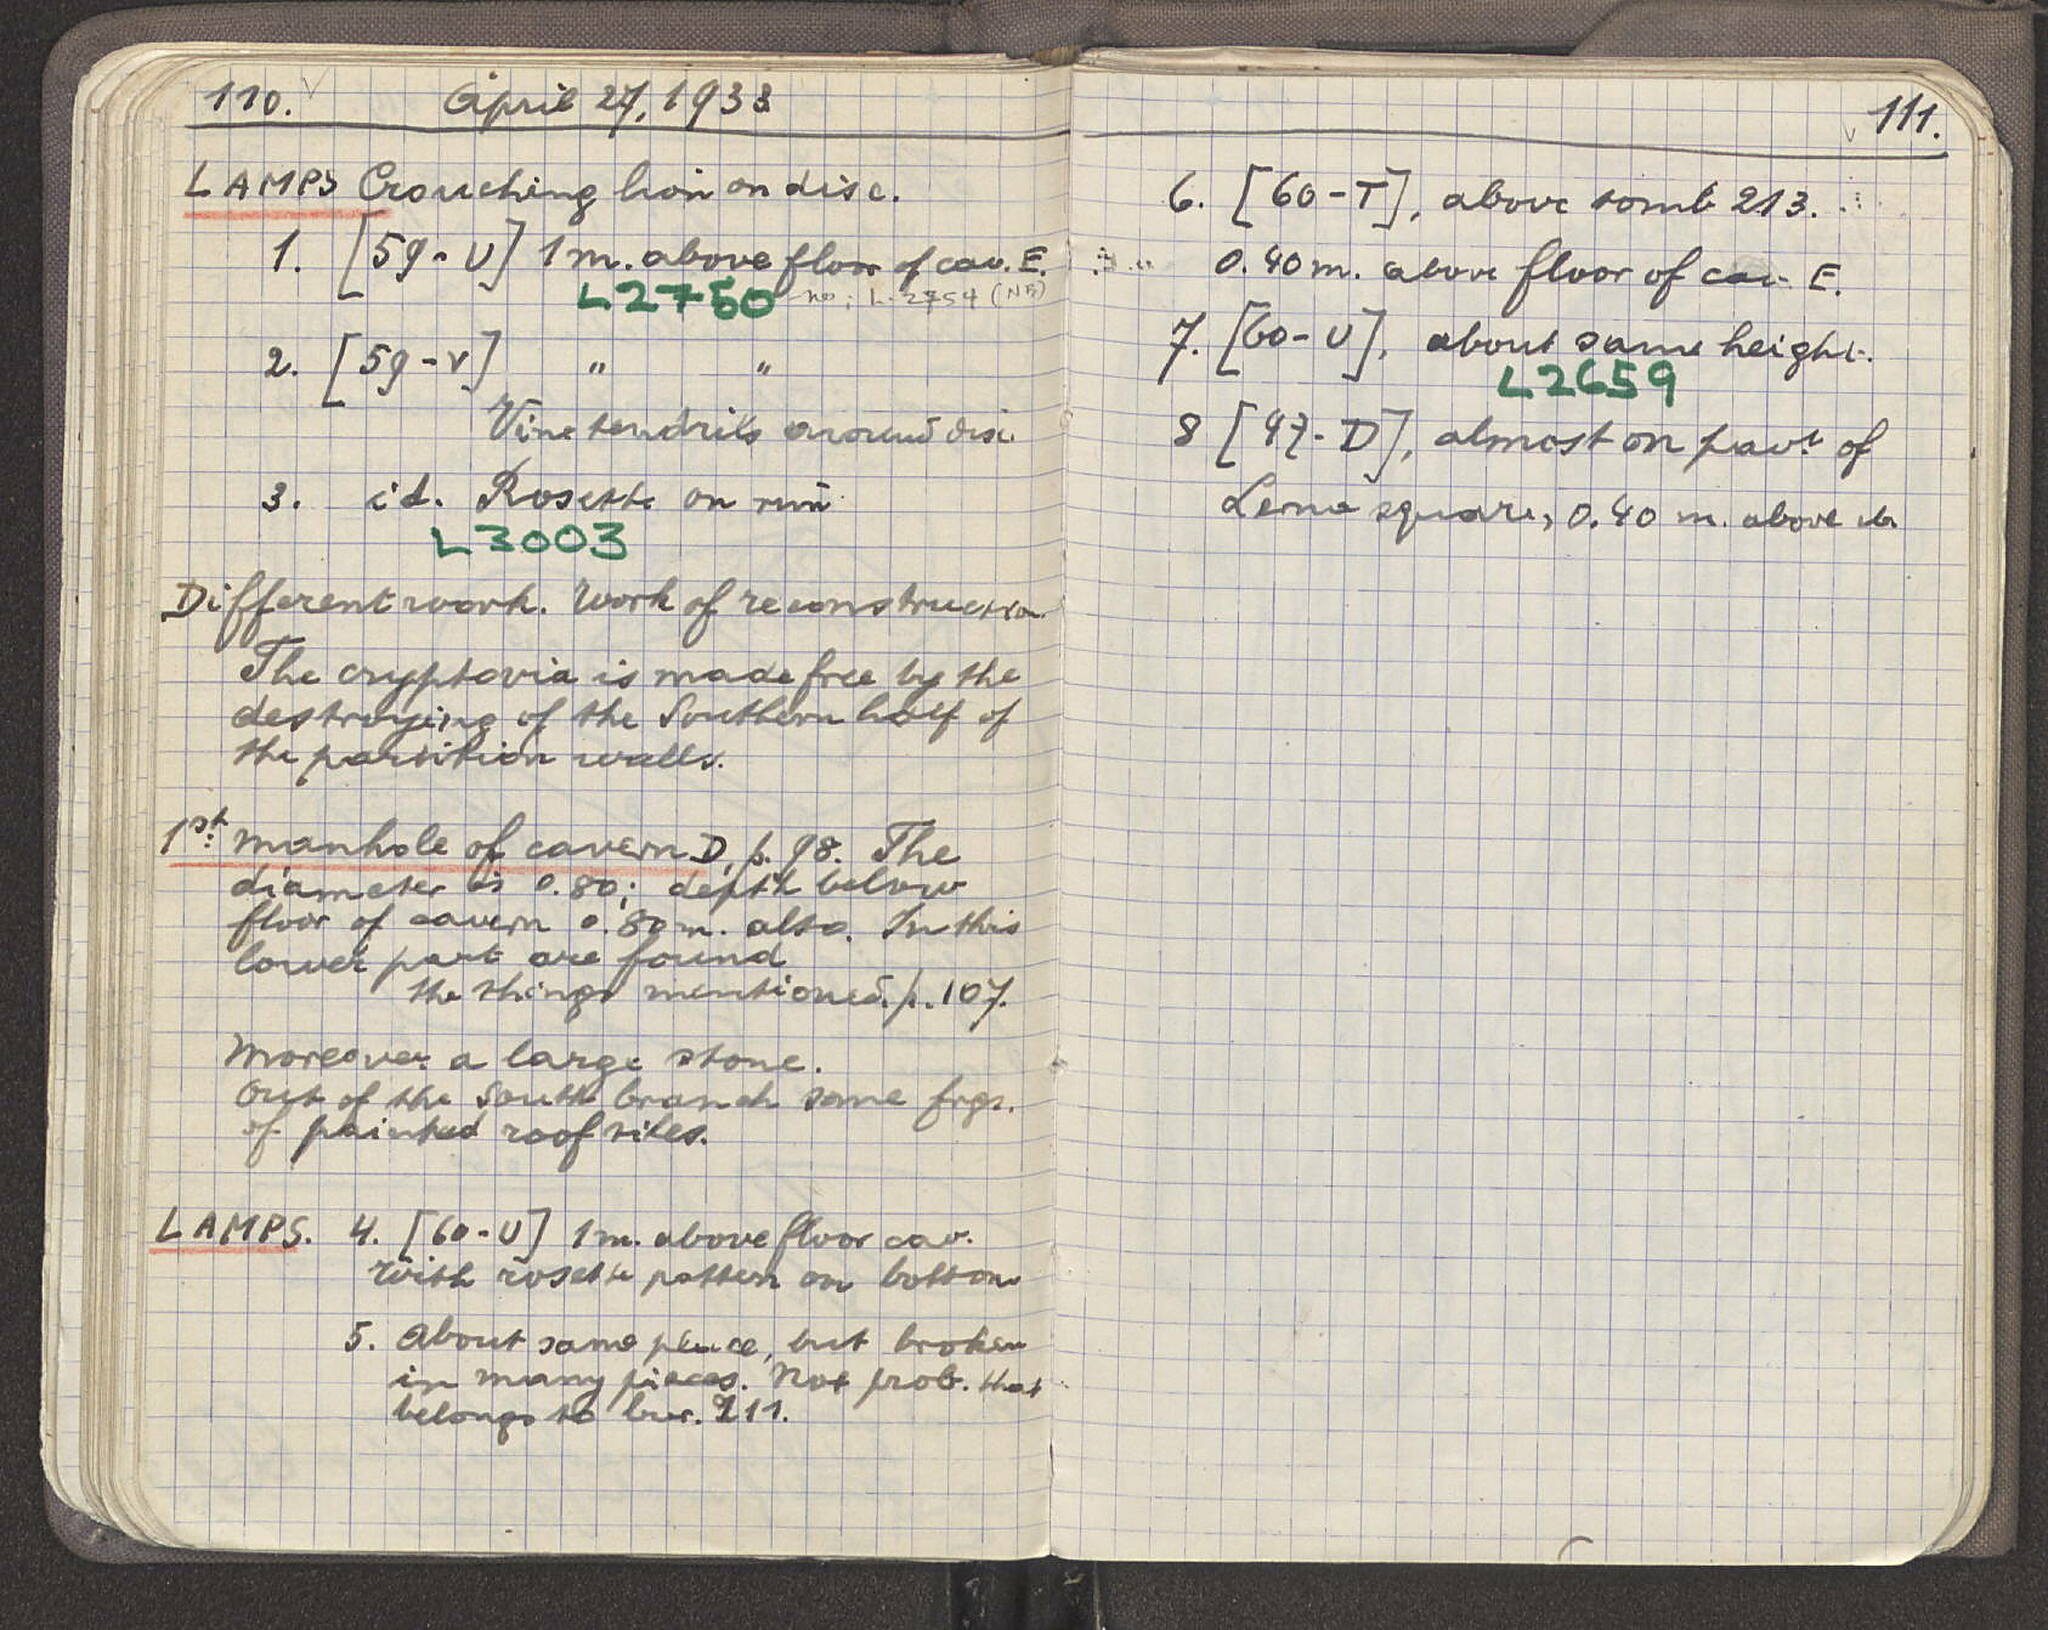 110. April 27, 1933
LAMPS Crouching lion on disc.
1. [59-U] 1m. above floor of cav. E.
L2750 no; L-2754 (NB)
2. [59-V] " "
Vine tendrils around disc.
3. id. Rosette on rim
L3003
Different work. Work of reconstruction
The cryptovia is made free by the
destroying of the Southern half of
the partition walls.
1st manhole of cavern D, p. 98. The
diameter is 0.80; depth below
floor of cavern 0.80m. also. In this
lower part are found
the things mentioned p. 107.
Moreover a large stone.
Out of the South branch some frgs.
of painted roof tiles.
LAMPS. 4. [60-U] 1m. above floor cav.
With rosette pattern on bottom
5. About same place, but broken
in many pieces. Not prob. that
belongs to bur. 211.
111.
6. [60-T], above tomb 213.
0.40m. above floor of cav. E.
7. [60-U], about same height.
L2659
8 [47-D], almost on pavt of
Lerna square, 0.40 m. above it.